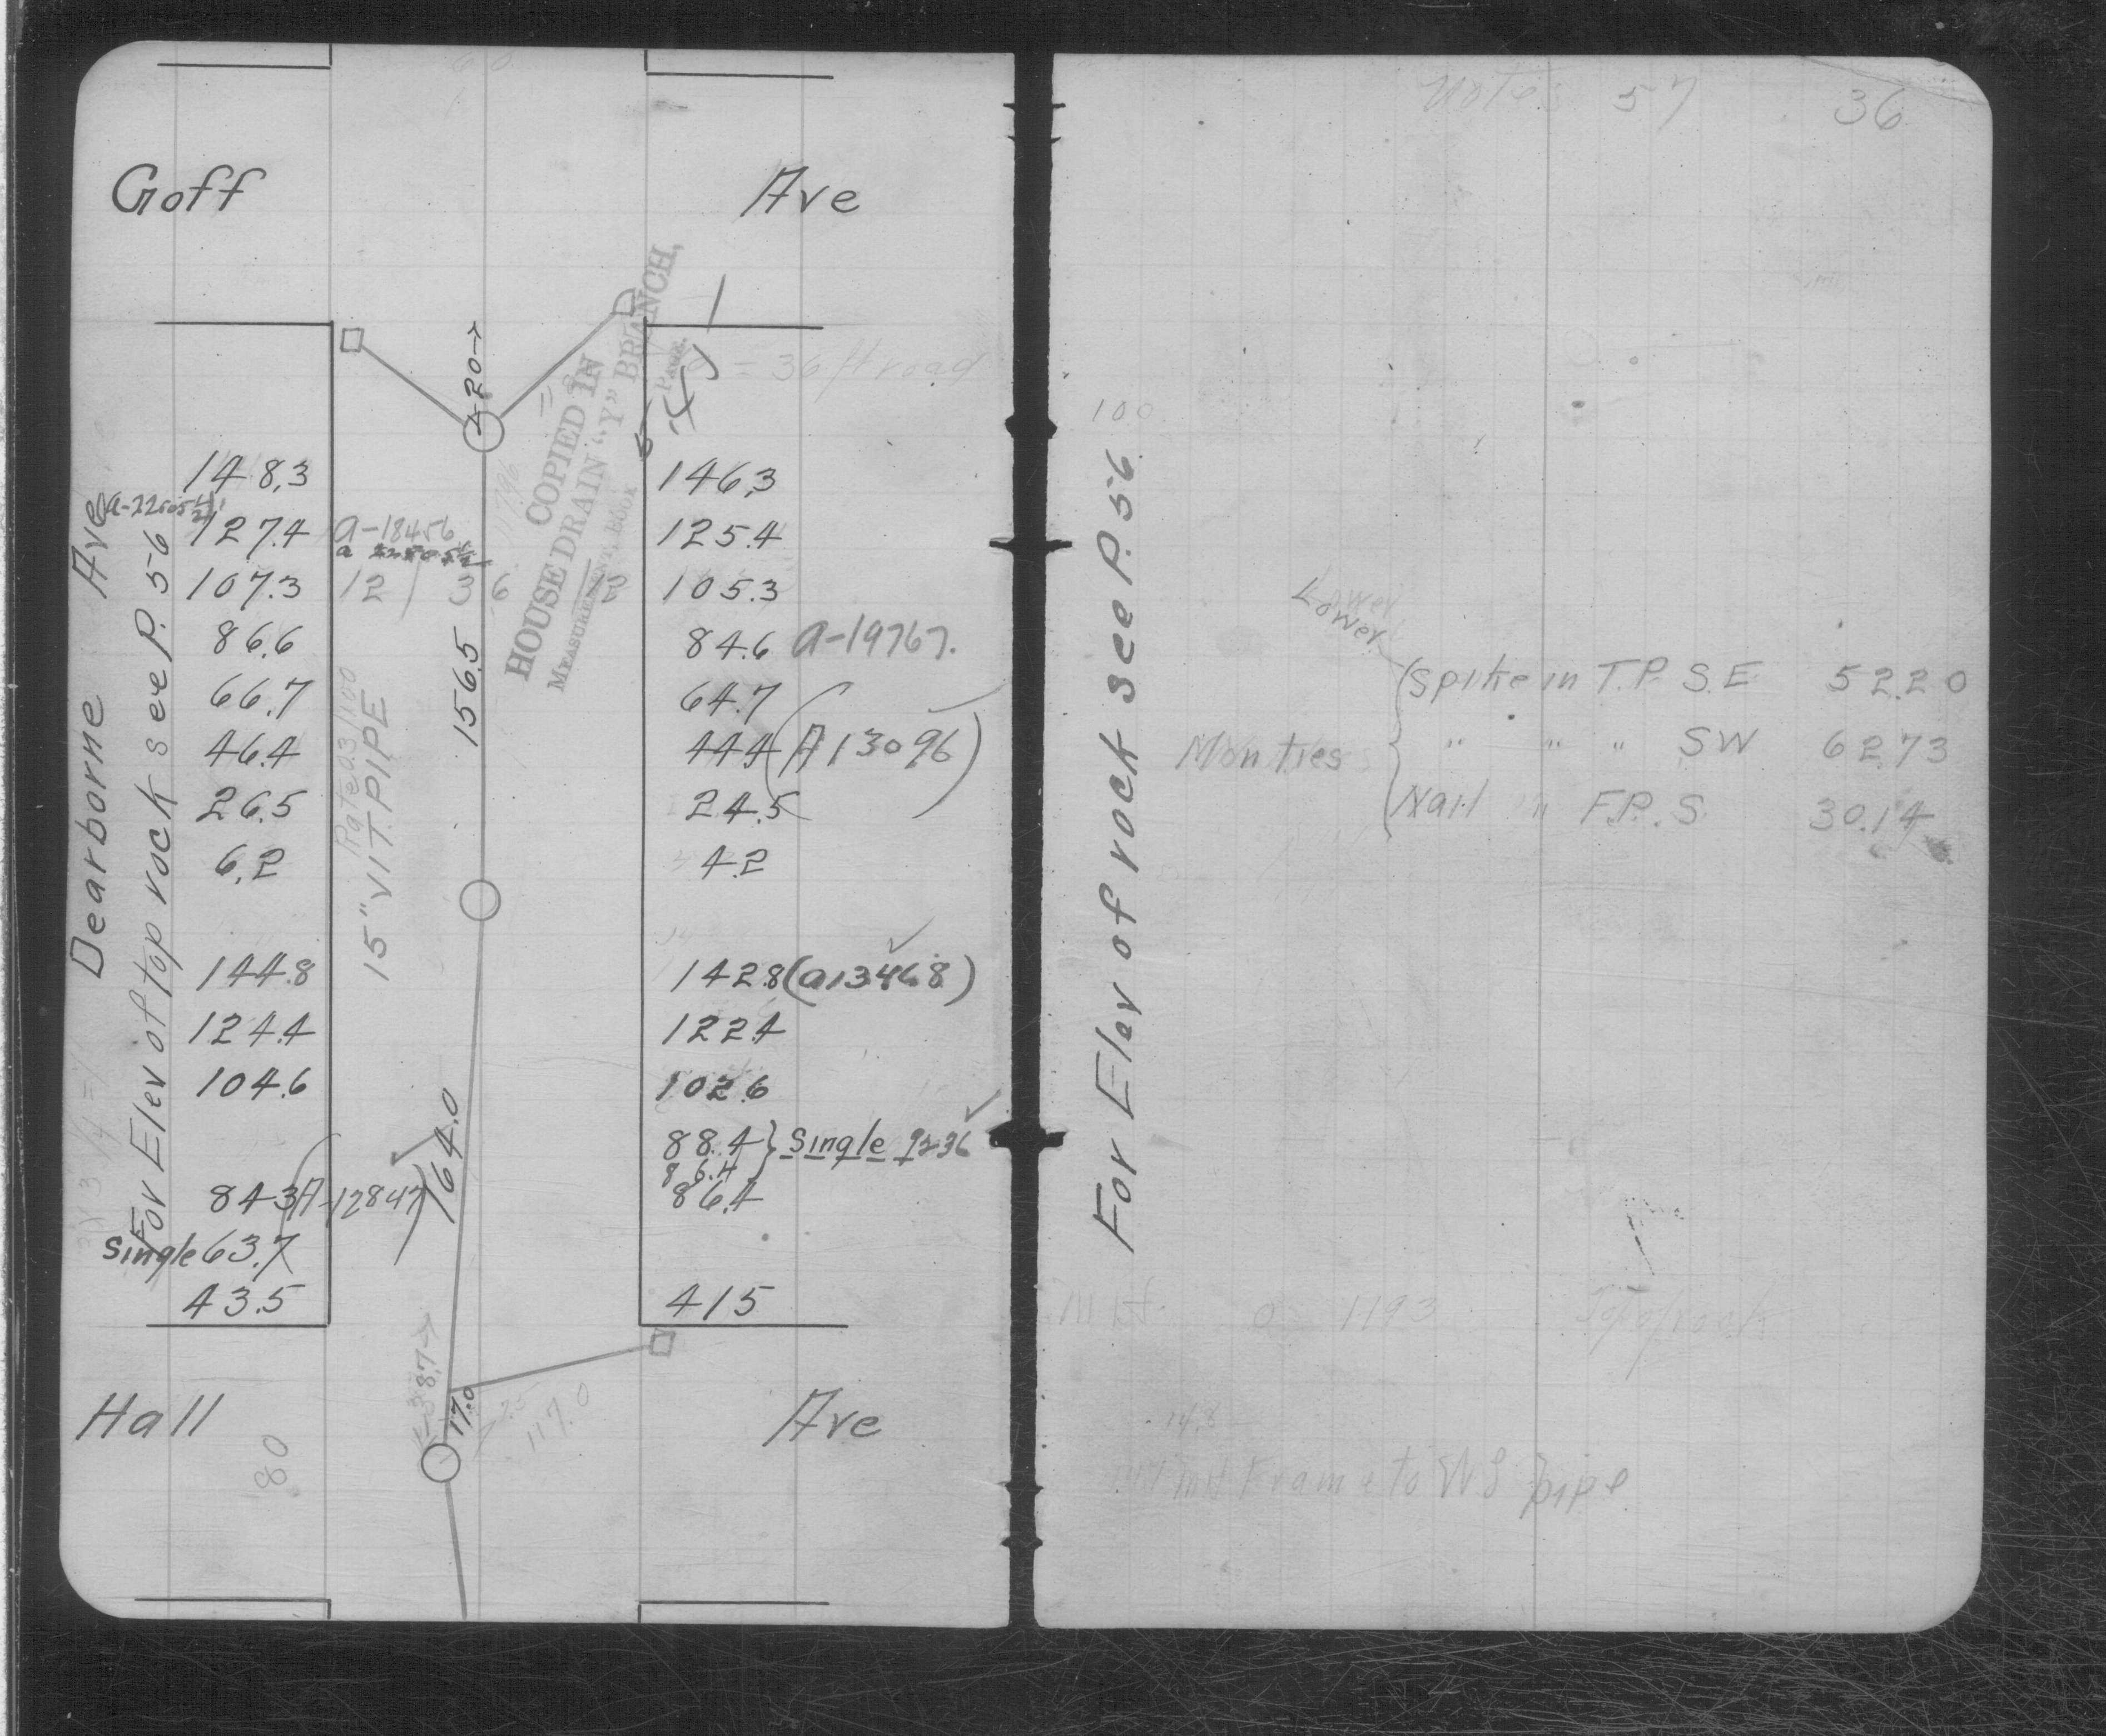 Goff Ave
20→
COPIED IN
HOUSE DRAIN "Y" BRANCH,
MEASUREMENT BOOK
PAGE
= 36 ft road
148.3
146.3
127.4
a-18456
125.4
107.3
12 36 12
105.3
86.6
84.6 a-19767.
66.7
64.7
46.4
44.4 (A 13096)
26.5
24.5
6.2
4.2
156.5
15" VIT. PIPE
Dearborne Ave
For Elev of top rock see P. 56
144.8
142.8 (a13468)
124.4
122.4
104.6
102.6
88.4 } Single 9236
86.4
84.3 (A-12847)
86.4
Single 63.7
43.5
41.5
164.0
38.7→
17.0
117.0
Hall Ave
80
Notes 57 36
100
For Elev of rock see P. 56
Lower
Lower
(Spike in T.P. S.E 52.20
Mon ties
" " " SW 62.73
Nail " F.P. S. 30.14
1193 Top of rock
MH Frame to WS pipe